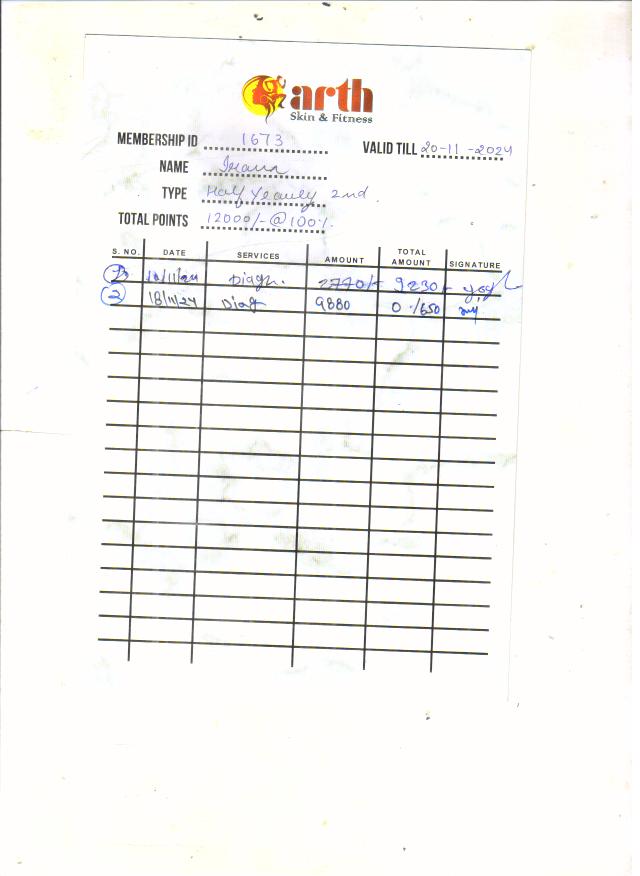 arth
Skin & Fitness
MEMBERSHIP ID 1673
VALID TILL 20-11-2024
NAME
TYPE Half Yearly 2nd.
TOTAL POINTS 12000/- @100%.
S. NO. DATE SERVICES AMOUNT TOTAL AMOUNT SIGNATURE
11/24 Diagn. 2770/- 9230/-
2 18/11/24 Diag 9880 0 /650